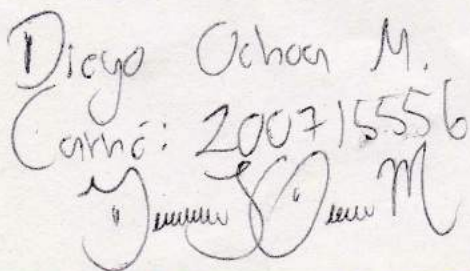 Diego Ochoa M.
Carné: 200715556